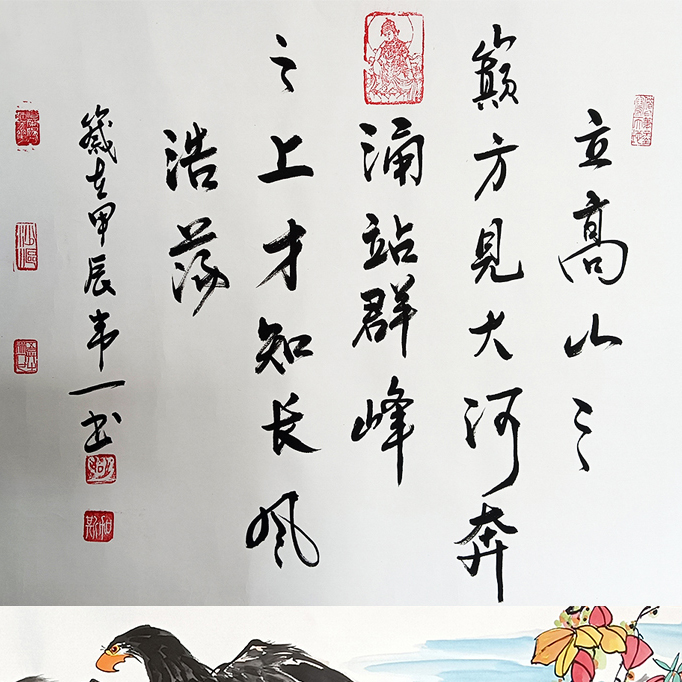 立高山之
巅方见大河奔
涌站群峰
之上才知长风
浩荡
岁在甲辰韦一书